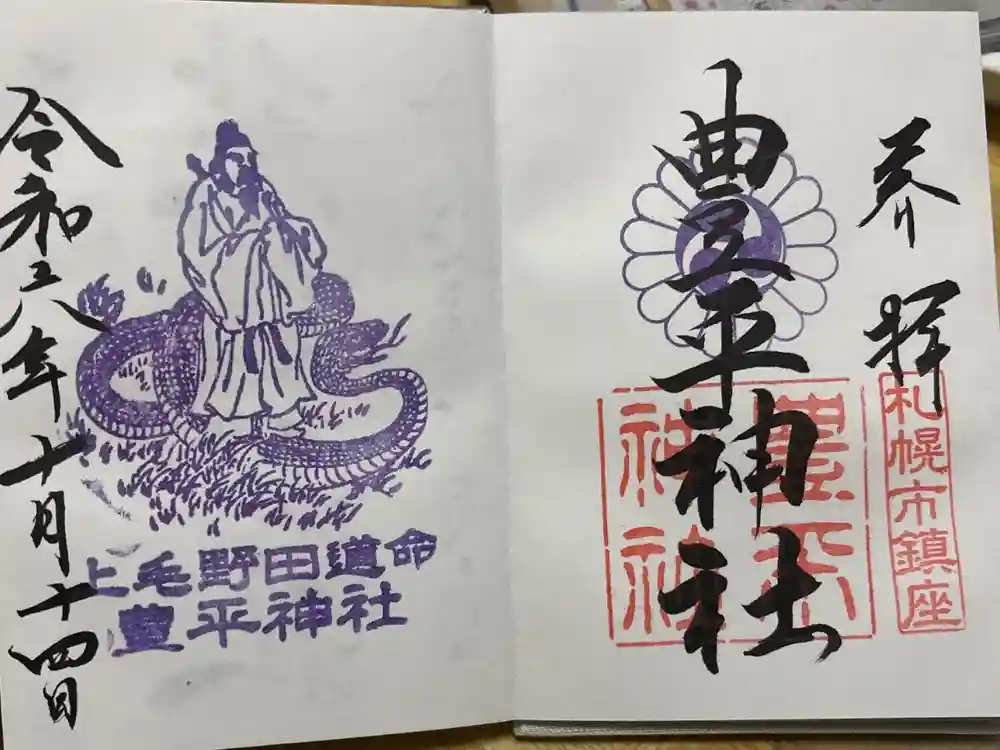 奉拝
札幌市鎮座
豊平神社
豊平神社
令和六年十月十四日
上毛野田道命
豊平神社